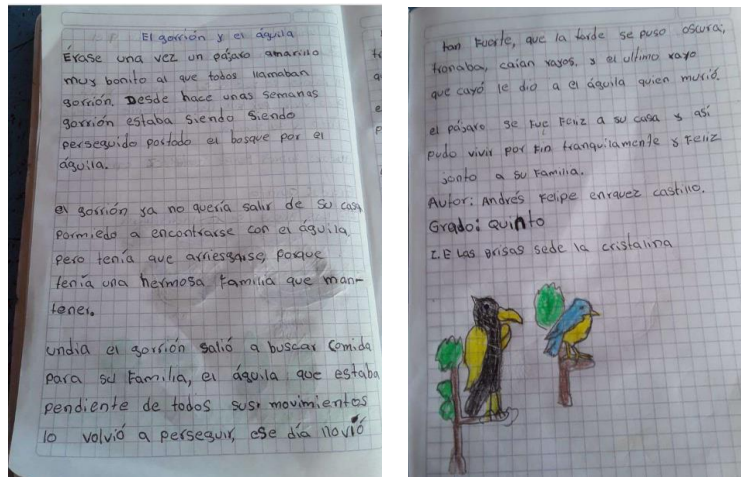 El gorrión y el águila
Érase una vez un pájaro amarillo
muy bonito al que todos llamaban
gorrión. Desde hace unas semanas
gorrión estaba siendo siendo
perseguido portodo el bosque por el
águila.
el gorrión ya no quería salir de su casa
pormiedo a encontrarse con el águila,
pero tenía que arriesgarse, porque
tenía una hermosa familia que man-
tener.
undia el gorrión salió a buscar comida
para su familia, el águila que estaba
pendiente de todos sus movimientos
lo volvió a perseguir, ese día llovió
tan fuerte, que la tarde se puso oscura,
tronaba, caían rayos, y el ultimo rayo
que cayó le dio a el águila quien murió.
el pájaro se fue feliz a su casa y así
pudo vivir por fin tranquilamente y feliz
jonto a su familia.
Autor: Andrés Felipe enrquez castillo.
Grado: Quinto
I.E Las Brisas sede la cristalina